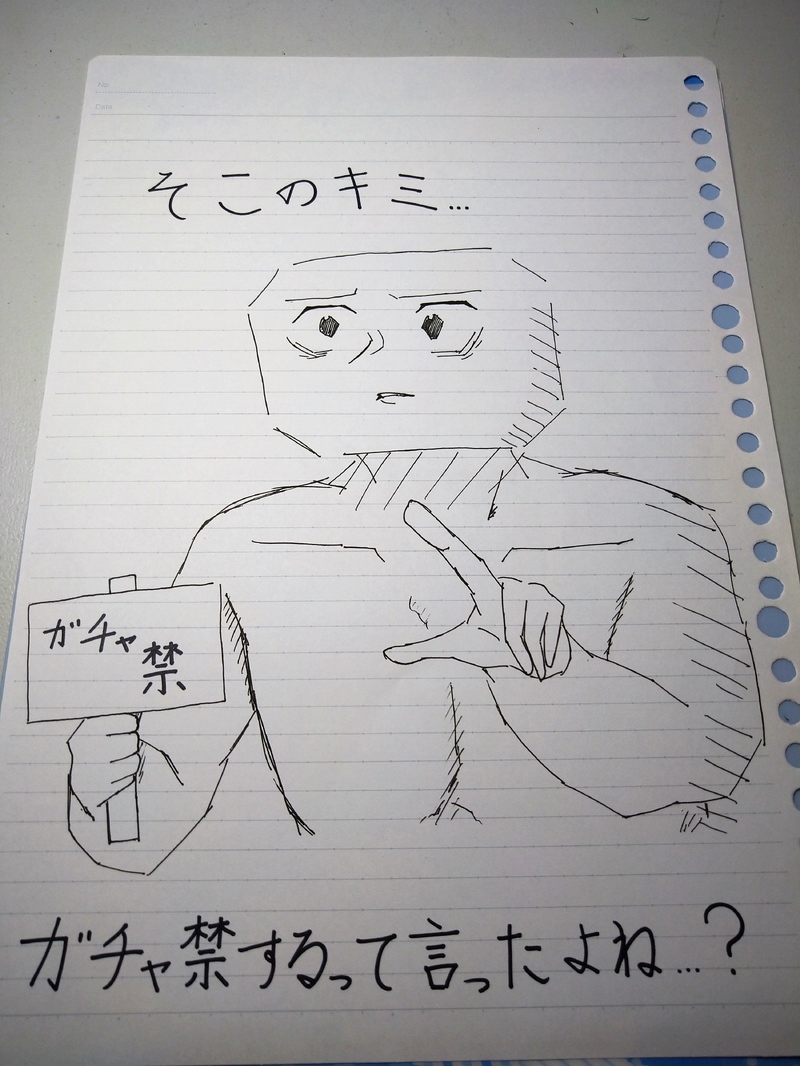 No.
Date
そこのキミ…
ガチャ
禁
ガチャ禁するって言ったよね…?